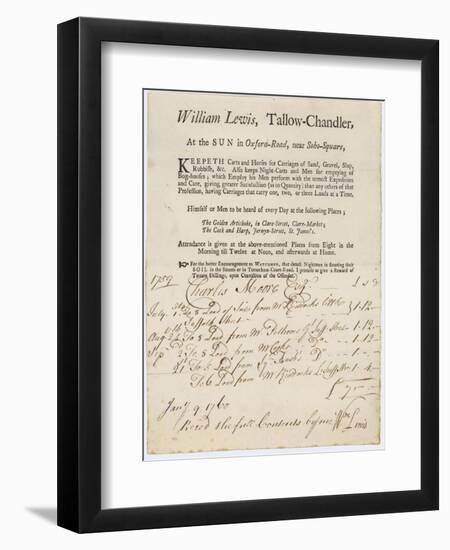 William Lewis, Tallow-Chandler,
At the SUN in Oxford-Road, near Soho-Square,
KEEPETH Carts and Horses for Carriages of Sand, Gravel, Slop,
Rubbish, &c. Also keeps Night-Carts and Men for emptying of
Bog-houses; which Employ his Men perform with the utmost Expedition
and Care, giving greater Satisfaction (as to Quantity) than any others of that
Profession, having Carriages that carry one, two, or three Loads at a Time.
Himself or Men to be heard of every Day at the following Places;
The Golden Artichoke, in Clare-Street, Clare-Market;
The Cock and Harp, Jermyn-Street, St. James's.
Attendance is given at the above-mentioned Places from Eight in the
Morning till Twelve at Noon, and afterwards at Home.
For the better Encouragement to WATCHMEN, that detect Nightmen in shooting their
SOIL in the Streets or in Tottenham-Court-Road, I promise to give a Reward of
Twenty Shillings, upon Conviction of the Offender.
1759 Charles Moore Esqr. £ s d
July To 8 Load of from Mr 1-12-
Suffolk Street
Augst To 8 Load from Mr 1-12-
Sep 2 To 8 Load from Mr 1-12
21 To Load from
To 6 Load from Mr 1-4-
£7
Jany 9 1760
Recd the full Contents by me Wm Lewis